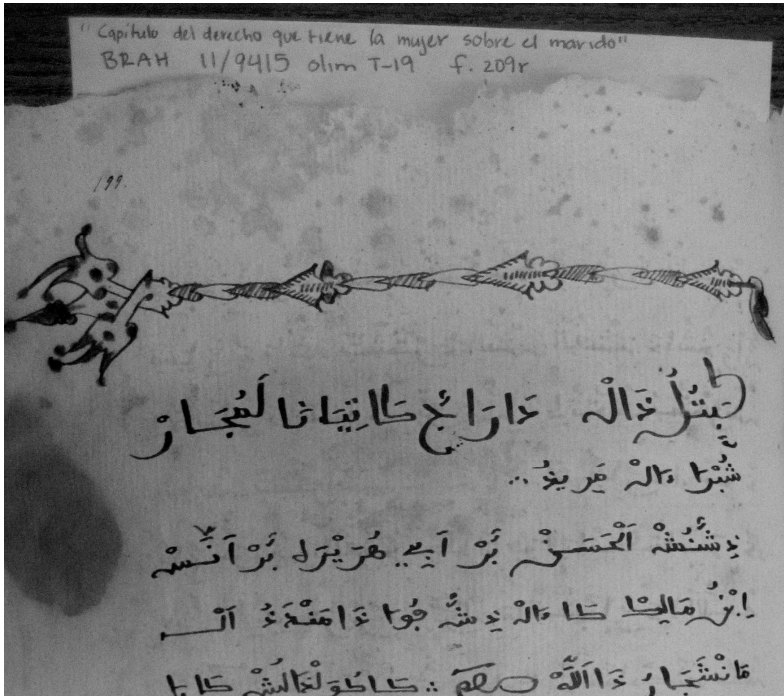 "Capítulo del derecho que tiene la mujer sobre el marido"
BRAH 11/9415 olim T-19 f. 209r
199.
كَبِتُلُ ذَالْ دَارَاجُ كَا تِيَانَا لَمُجَارْ
شُبْرَا دَالْ مَرِيذُ ..
ذِشَنُشْ اَلْحَسَنْ بَرْ اَبِي هُرَيْرَه بَرْ اَنَسْ
اِبْنُ مَالِكْ كَا دَالْ ذِشُّ جُوا ذَا مَنْدَذُ اَلْ
مَانْشَجَارُ ذَا اَللَّهْ